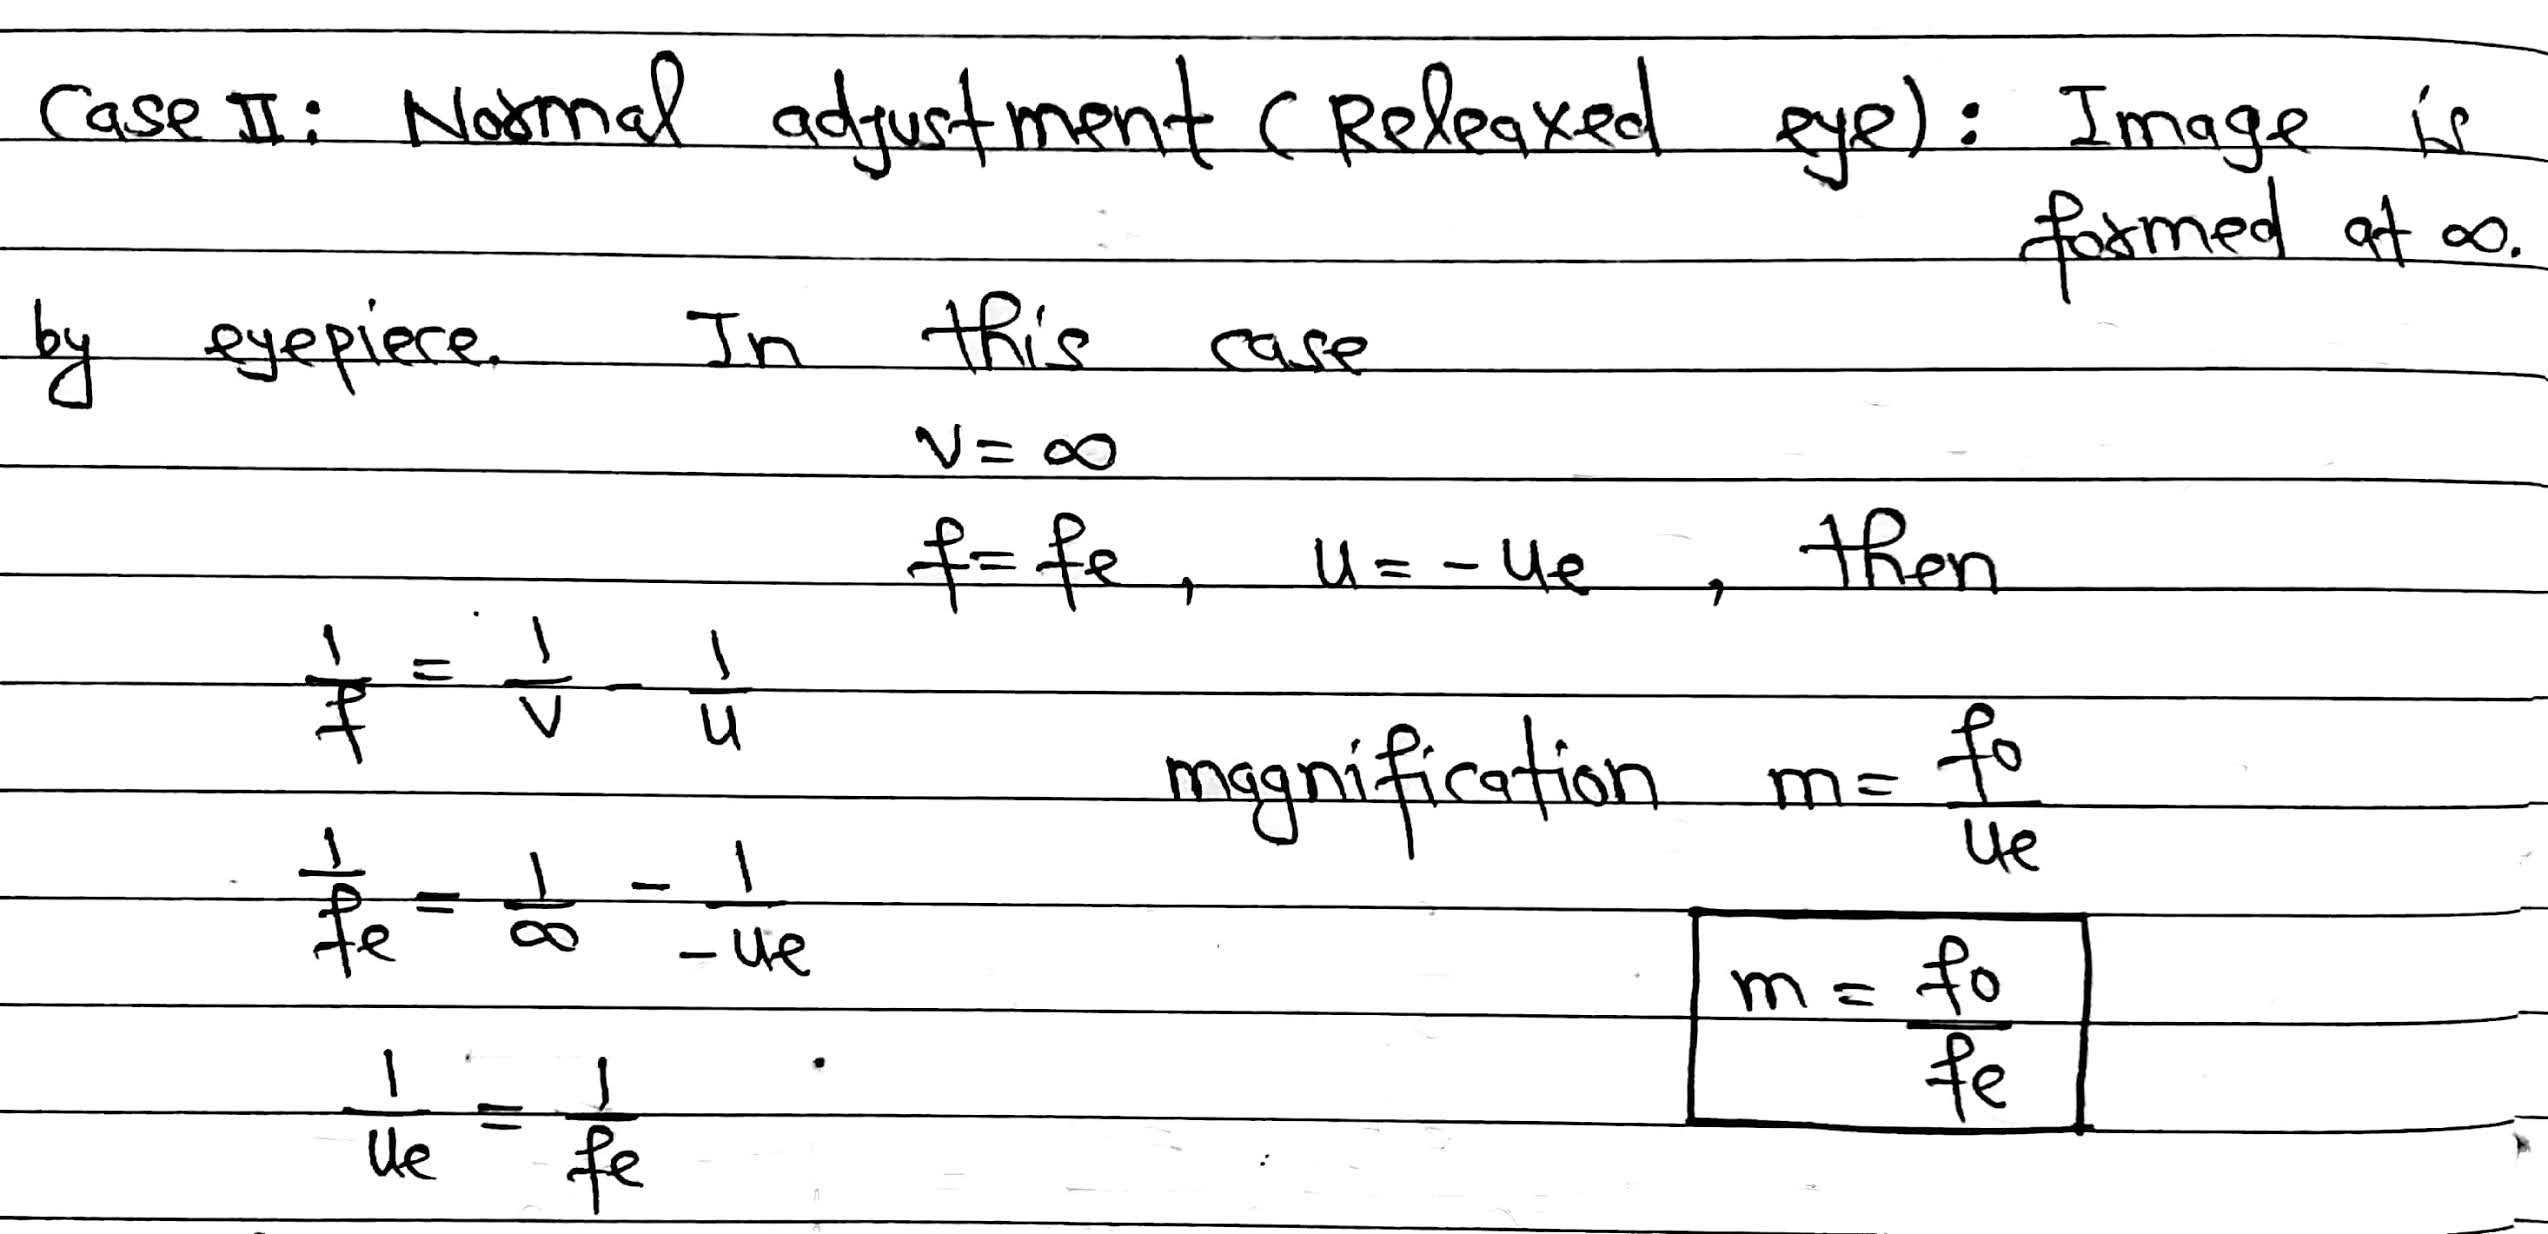 Case II: Normal adjustment (Releaxed eye): Image is
formed at ∞.
by eyepiece. In this case
v = ∞
f = fe, u = -ue, then
1/f = 1/v - 1/u
magnification m = fo/ue
1/fe = 1/∞ - 1/-ue
m = fo/fe
1/ue = 1/fe